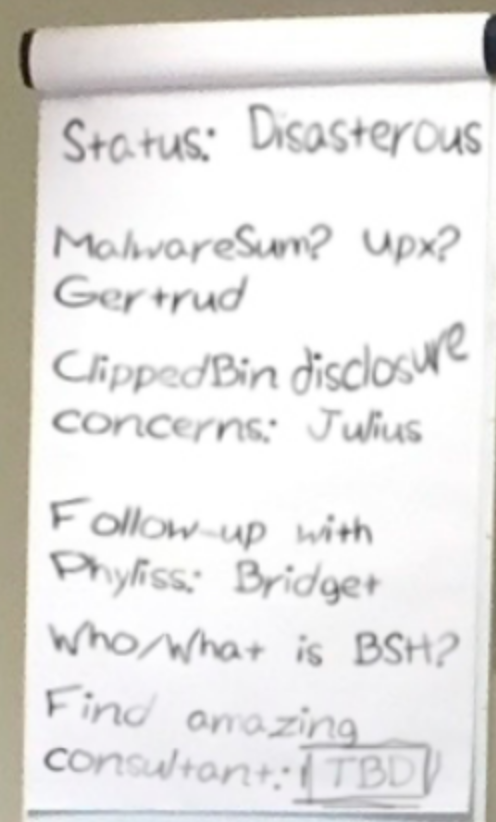 Status: Disasterous
MalwareSum? Upx?
Gertrud
ClippedBin disclosure
concerns: Julius
Follow-up with
Phyliss: Bridget
Who/What is BSH?
Find amazing
consultant: TBD